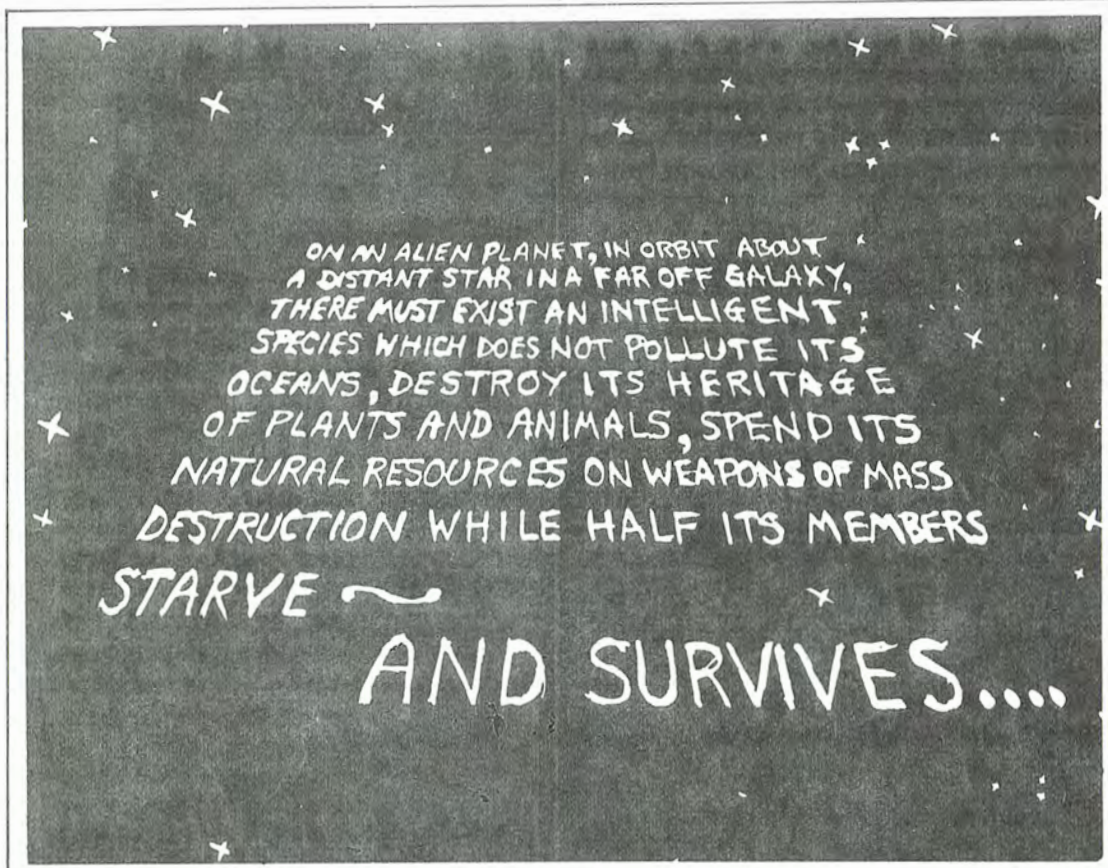 ON AN ALIEN PLANET, IN ORBIT ABOUT
A DISTANT STAR IN A FAR OFF GALAXY,
THERE MUST EXIST AN INTELLIGENT
SPECIES WHICH DOES NOT POLLUTE ITS
OCEANS, DESTROY ITS HERITAGE
OF PLANTS AND ANIMALS, SPEND ITS
NATURAL RESOURCES ON WEAPONS OF MASS
DESTRUCTION WHILE HALF ITS MEMBERS
STARVE ~
AND SURVIVES....